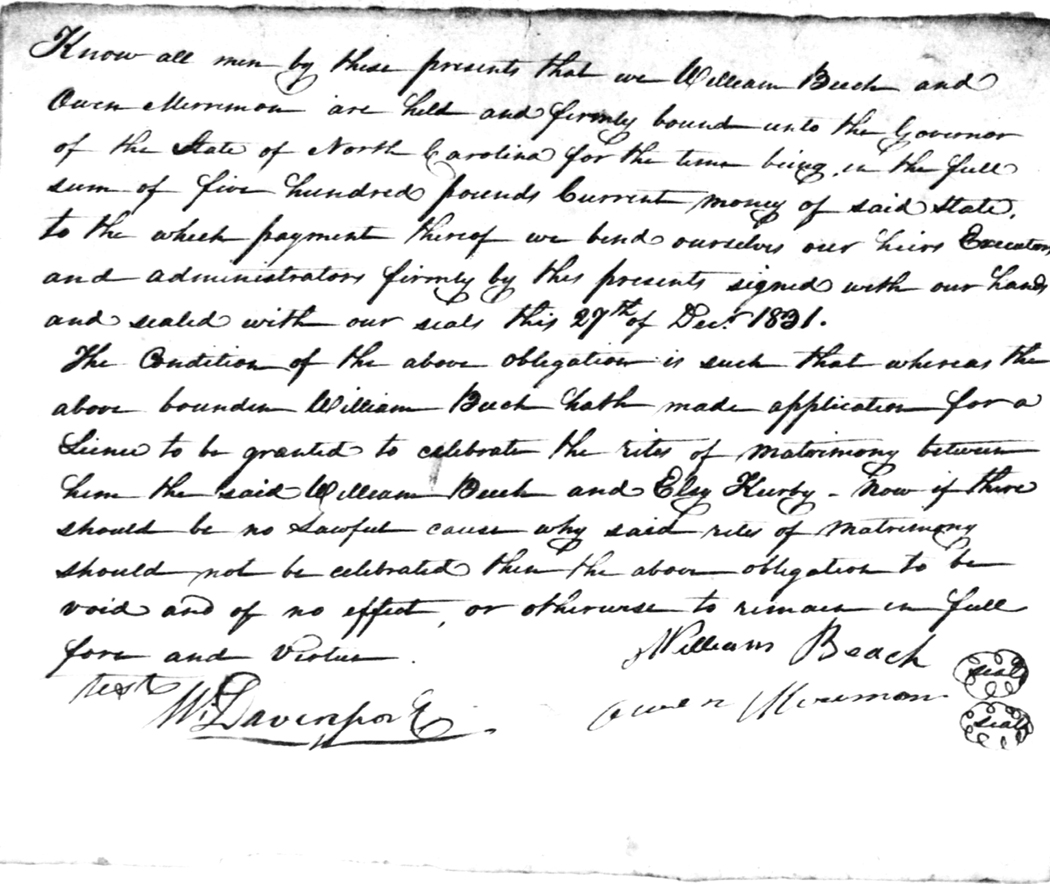 Know all men by these presents that we William Beech and
Owen Merrimon are held and firmly bound unto the Governor
of the State of North Carolina for the time being, in the full
sum of five hundred pounds Current money of said State,
to the which payment thereof we bind ourselves our heirs Executors
and administrators firmly by this presents signed with our hands
and sealed with our seals this 27th of Decr 1831.
The Condition of the above obligation is such that whereas the
above bounden William Beech hath made application for a
Lience to be granted to celebrate the rites of matrimony between
him the said William Beech and Elsy Kurby - Now if there
should be no Lawful cause why said rites of matrimony
should not be celebrated then the above obligation to be
void and of no effect, or otherwise to remain in full
force and virtue.
William Beach seal
test
W. Davenport
Owen Merrimon seal